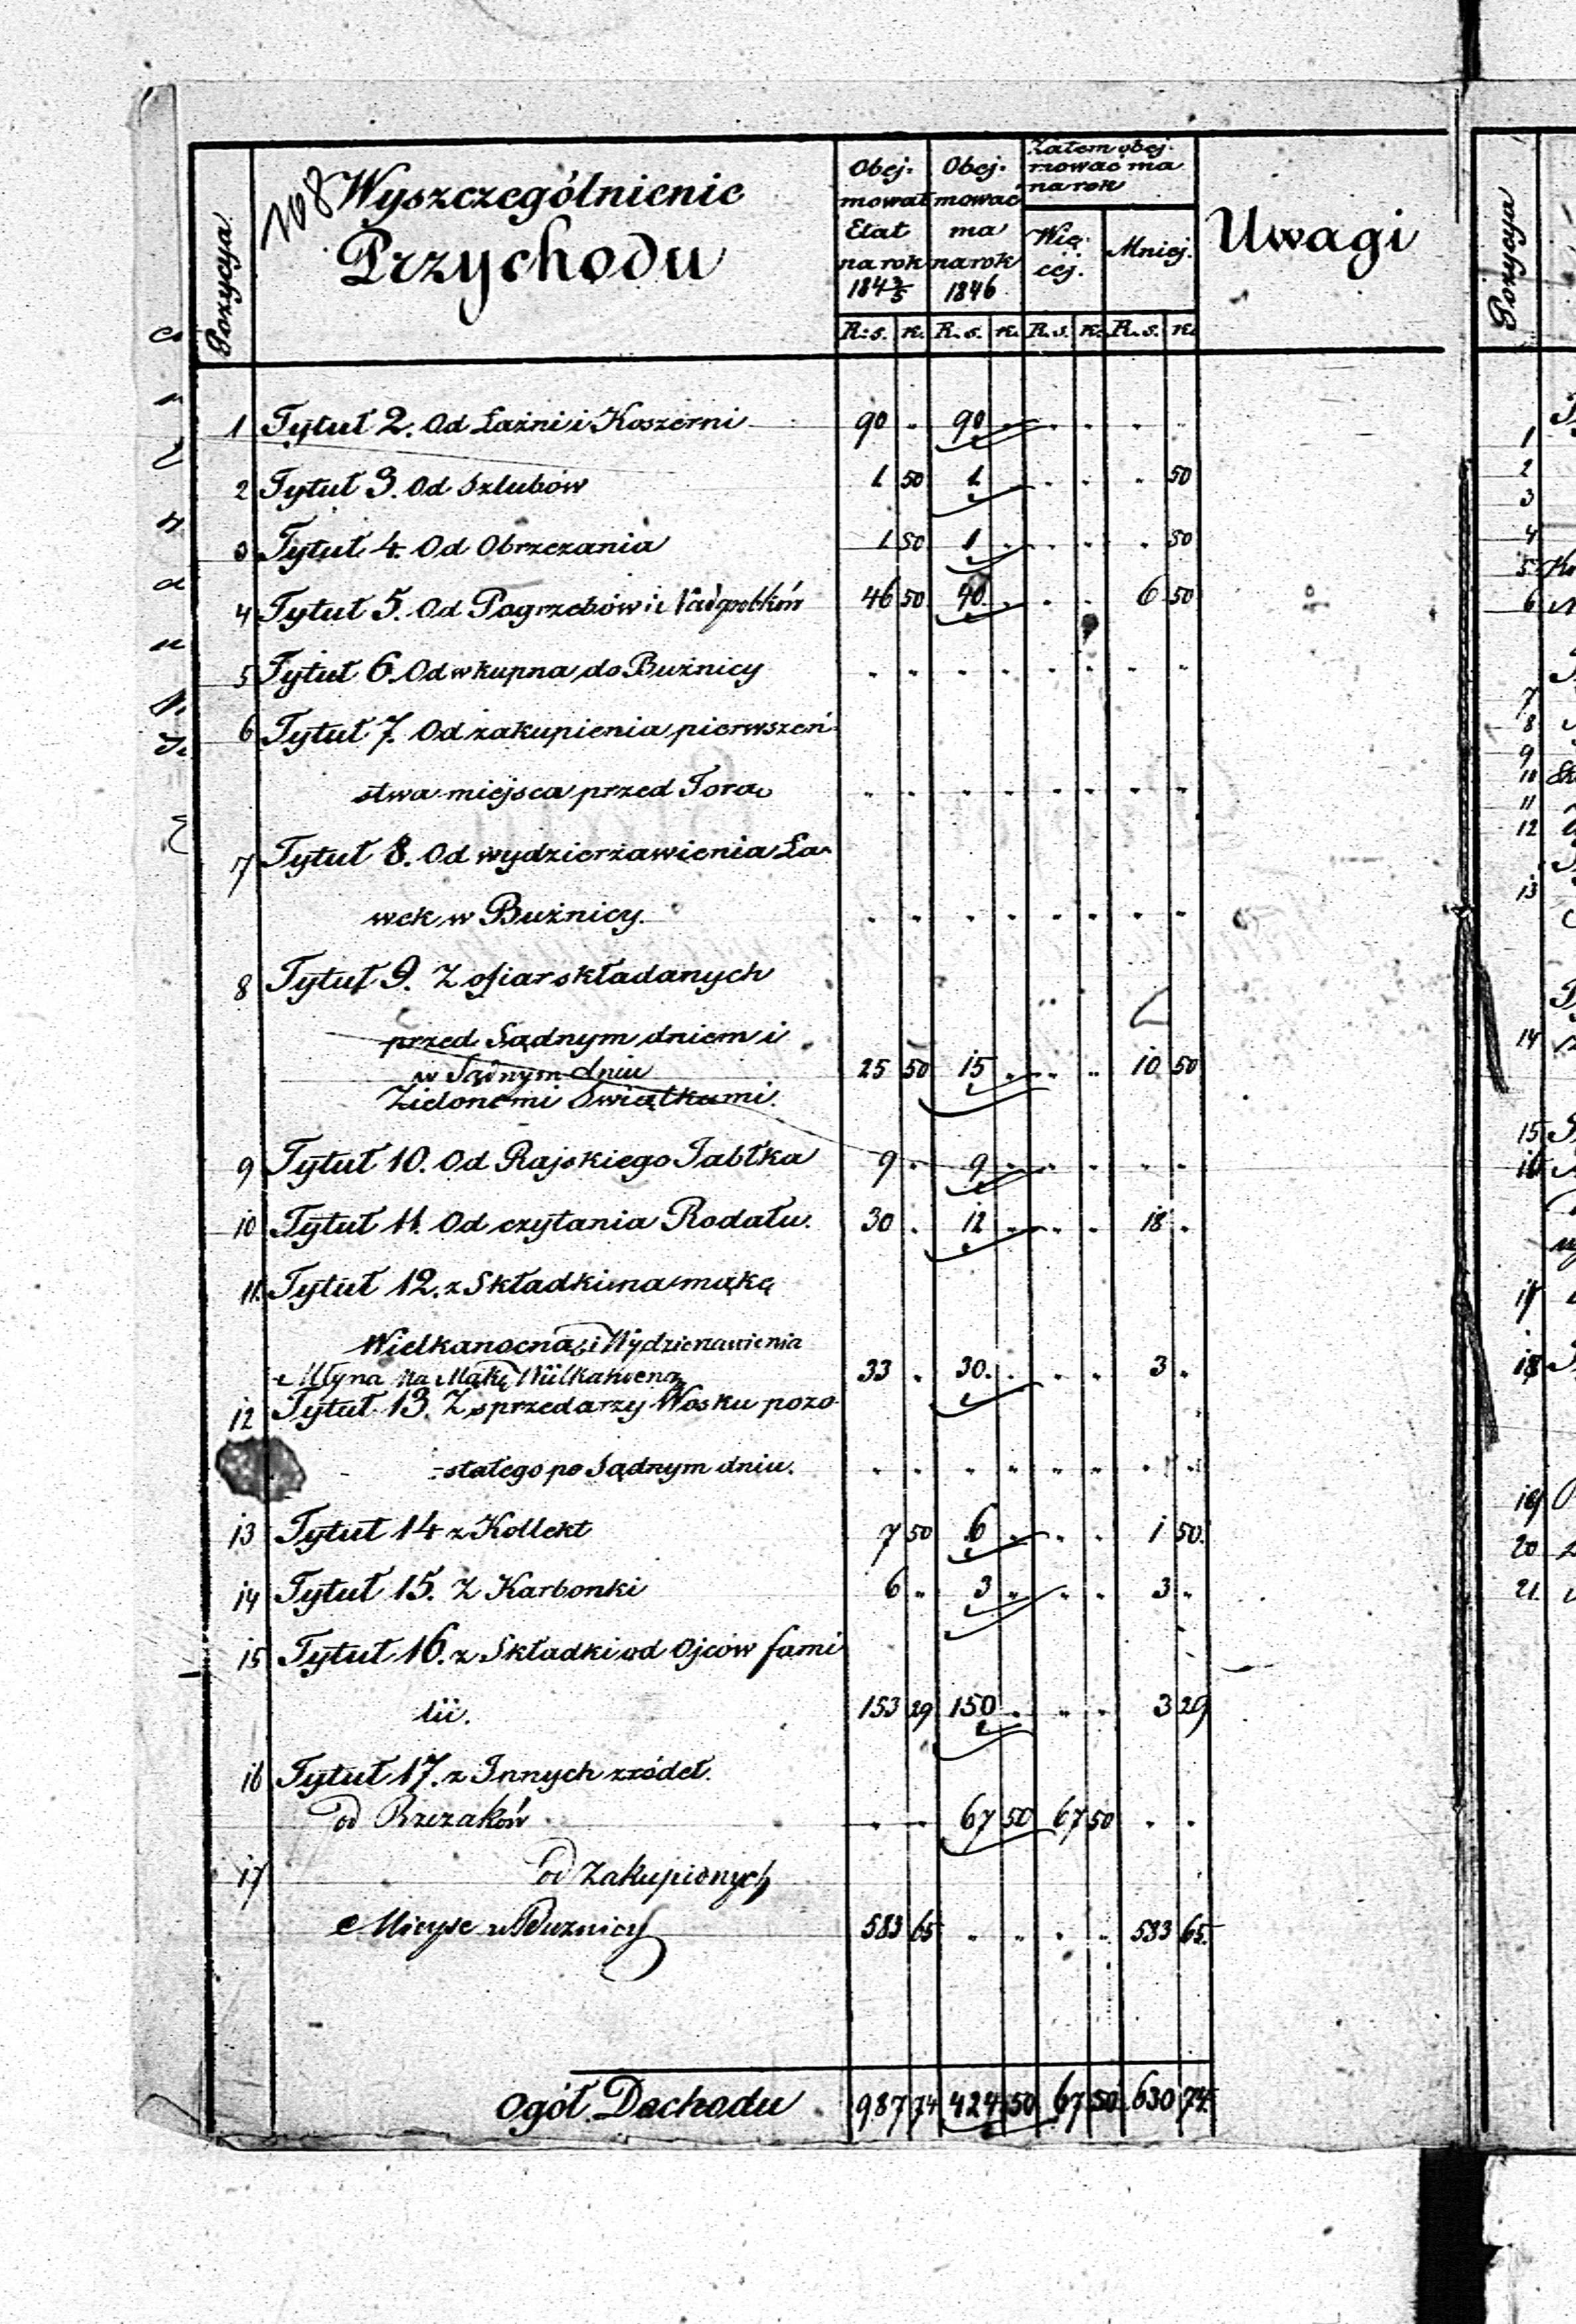 Pozycya
108
Wyszczególnienie
Przychodu
Obej-
mował
Etat
na rok
184 3/5
Obej-
mować
ma
na rok
1846
Zatem obej-
mować ma
na rok
Wię-
cej.
Mniej.
Uwagi
R.s. k. R.s. k. R.s. k. R.s. k.
1 Tytuł 2. Od Łaźni i Koszerni 90 " 90 " " " " "
2 Tytuł 3. Od Szlubów 1 50 1 " " " " 50
3 Tytuł 4. Od Obrzezania 1 50 1 " " " " 50
4 Tytuł 5. Od Pogrzebów i Nadgrobków 46 50 40 " " " 6 50
5 Tytuł 6. Od wkupna do Bużnicy " " " " " " " "
6 Tytuł 7. Od zakupienia pierwszeń-
stwa miejsca przed Torą " " " " " " " "
7 Tytuł 8. Od wydzierżawienia Ła-
wek w Bużnicy. " " " " " " " "
8 Tytuł 9. Z ofiar składanych
przed Sądnym dniem i
w Sądnym dniu 25 50 15 " " " 10 50
Zielonemi Swiątkami.
9 Tytuł 10. Od Rajskiego Jabłka 9 " 9 " " " " "
10 Tytuł 11. Od czytania Rodału. 30 " 12 " " " 18 "
11. Tytuł 12. z Składki na mąkę
Wielkanocną i Wydzierzawienia
Młyna na Mąkę Wielkanocną 33 " 30. " " " 3 "
12 Tytuł 13. Z sprzedarzy Wosku pozo-
-stałego po Sądnym dniu. " " " " " " " "
13 Tytuł 14 z Kollekt 7 50 6 " " " 1 50.
14 Tytuł 15. Z Karbonki 6 " 3 " " " 3 "
15 Tytuł 16. z Składki od Ojców fami
lii. 153 29 150 " " " 3 29
16 Tytuł 17. z Innych zródeł.
od Rzezaków " " 67 50 67 50 " "
17 od Zakupionych
Mieysc w Buznicy 583 65 " " " " 583 65.
Ogół Dochodu 987 74 424 50 67 50 630 74
Pozycya
1
2
3
4
5
6
7
8
9
10
11
12
13
14
15
16
17
18
19
20
21.